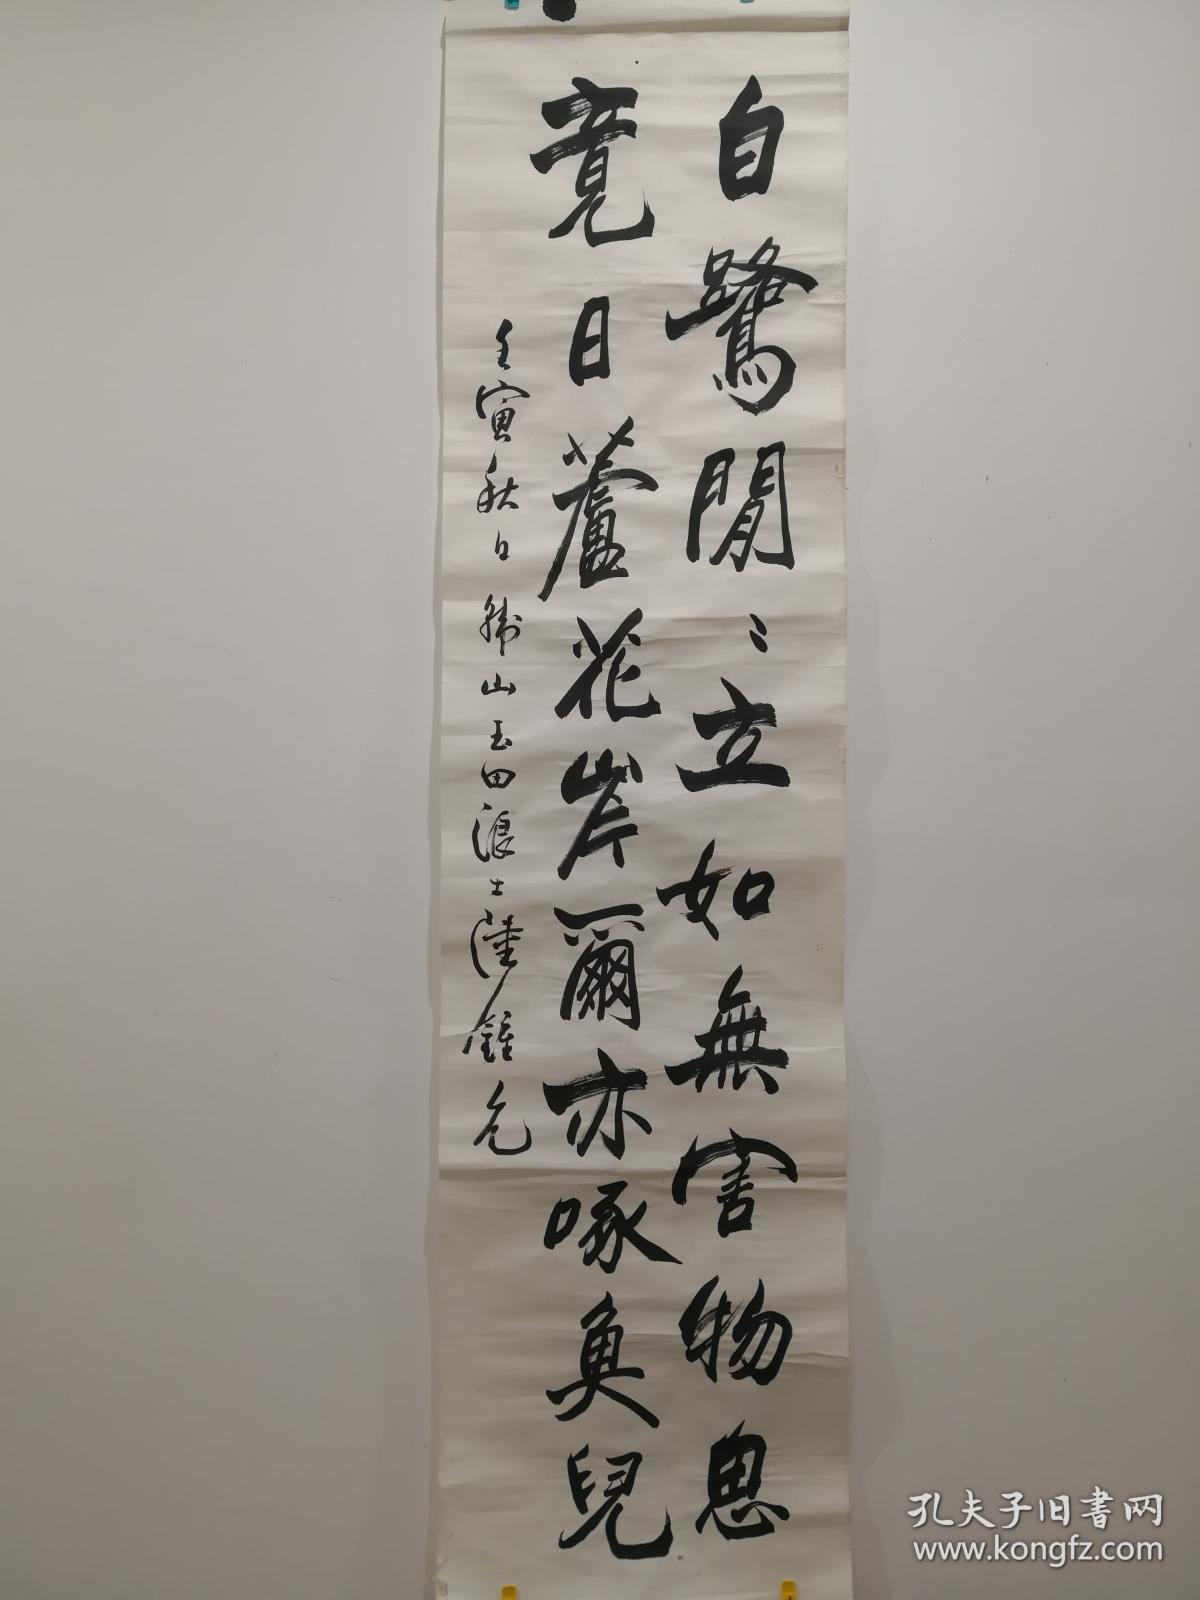 白鷺閒〻立如無害物思
竟日蘆花岸爾亦啄魚兒
壬寅秋日 山玉田浪士陸鍾
孔夫子旧书网
www.kongfz.com